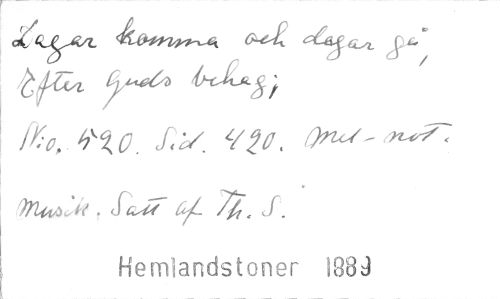 Dagar komma och dagar gå,
Efter Guds behag;
No. 520. Sid. 420. Mel-not.
musik. Satt af Th. S.
Hemlandstoner 1889